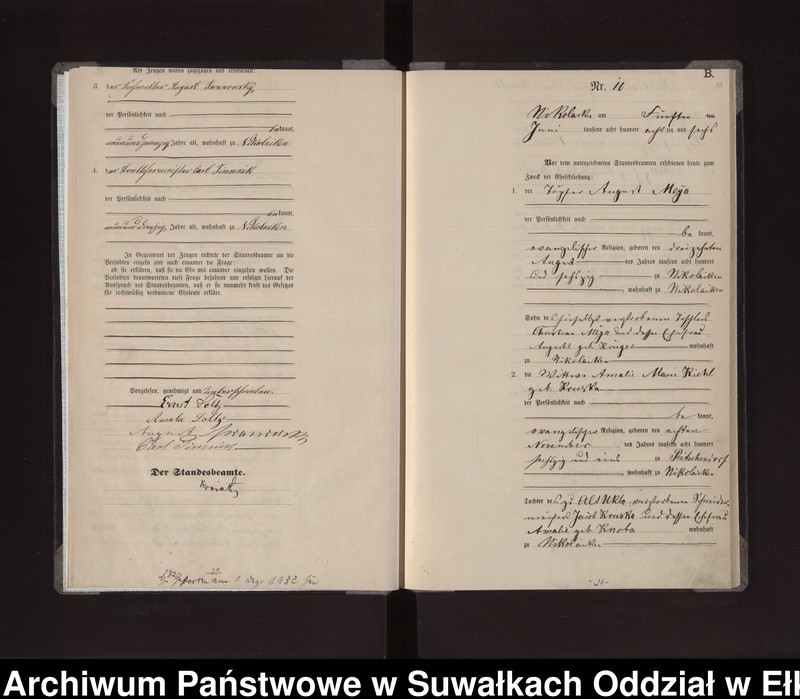 Als Zeugen waren zugezogen und erschienen:
3. der August Iwanowsky
der Persönlichkeit nach
be kannt,
neunundzwanzig Jahre alt, wohnhaft zu Nikolaiken
4. der Carl Simmnik
der Persönlichkeit nach
be kannt,
Jahre alt, wohnhaft zu Nikolaiken
In Gegenwart der Zeugen richtete der Standesbeamte an die
Verlobten einzeln und nach einander die Frage:
ob sie erklären, daß sie die Ehe mit einander eingehen wollen. Die
Verlobten beantworteten diese Frage bejahend und erfolgte hierauf der
Ausspruch des Standesbeamten, daß er sie nunmehr kraft des Gesetzes
für rechtmäßig verbundene Eheleute erkläre.
Vorgelesen, genehmigt und unterschrieben.
Ernst Soltz
Amalie Soltz
August Iwanowsky
Carl Simmnik
Der Standesbeamte.
am 1. 1932
B.
Nr. 10
Nikolaiken am Fünften ten
Juni tausend acht hundert acht zig und sechs
Vor dem unterzeichneten Standesbeamten erschienen heute zum
Zweck der Eheschließung:
1. der Töpfer August Meya
der Persönlichkeit nach
be kannt,
evangelischer Religion, geboren den dreizehnten
August des Jahres tausend acht hundert
und sechszig zu Nikolaiken
, wohnhaft zu Nikolaiken
Sohn des hierselbst verstorbenen Töpfers
Christian Meya und dessen Ehefrau
Auguste geb. Krüger wohnhaft
zu Nikolaiken
2. die Wittwe Amalie Marie
geb. Kruska
der Persönlichkeit nach
be kannt,
evangelischer Religion, geboren den achten
November des Jahres tausend acht hundert
sechszig und eins zu
, wohnhaft zu Nikolaiken
Tochter des zu Alt Ukta verstorbenen Schneider-
meisters Jacob Kruska und dessen Ehefrau
Amalie geb. wohnhaft
zu Nikolaiken
-21-
Archiwum Państwowe w Suwałkach Oddział w Ełk